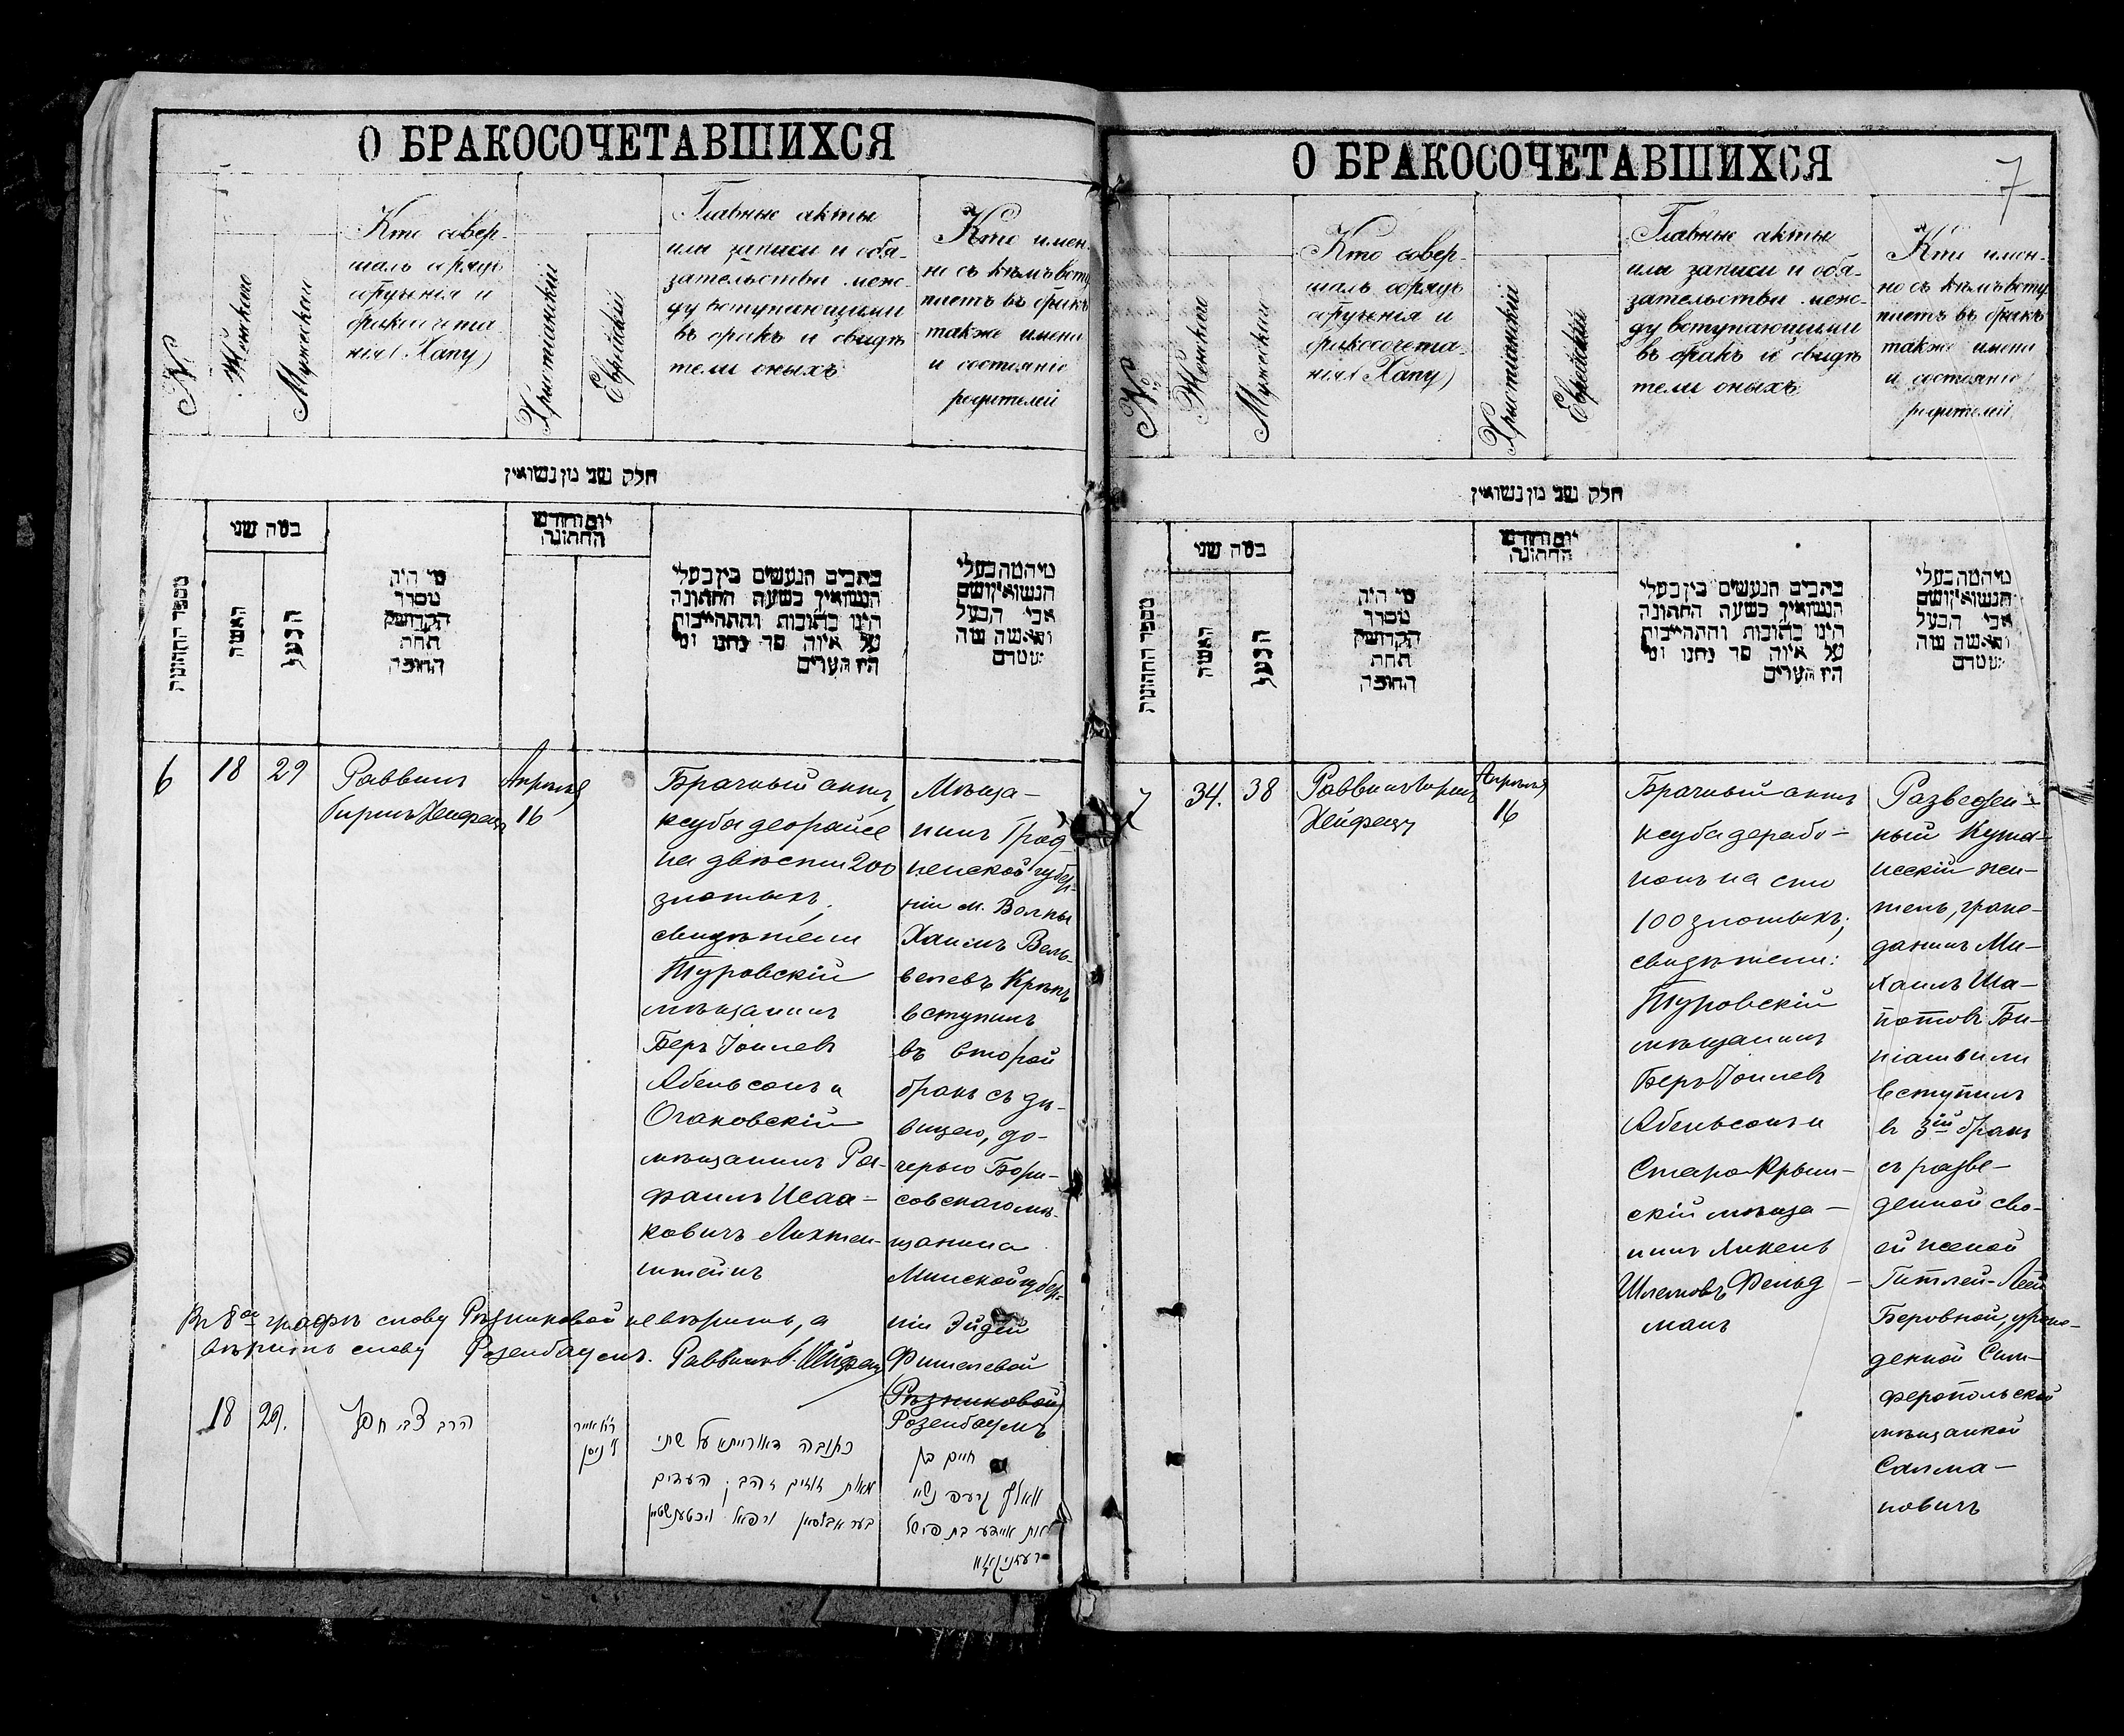 О БРАКОСОЧЕТАВШИХСЯ
№
Женскаго
Мужескаго
Кто совер-
шалъ обрядъ
обрученія и
бракосочета
нія (Хапу)
Христіанскій
Еврейскій
Главные акты
или записи и обя-
зательства меж-
ду вступающими
въ бракъ и свидѣ
тели оныхъ
Кто имен-
но съ кѣмъ всту
паетъ въ бракъ
также имена
и состояніе
родителей
חלק שני מן נשואין
מספר החתונות
כמה שני
האשה
הבעל
מי היה
מסדר
תחת
החופה
יום וחודש
החתונה
כתבים הנעשים בין בעלי
הנשואין בשעת החתונה
היינו כתובות והתחייבות
על איזה סך נתנו ומי
היו העדים
הנשואין ושם
אבי הבעל
6
18
29
Раввинъ
Гиршъ Хейфецъ
Апрѣля
16
Брачный актъ
ксуба деорайсе
на двѣсти 200
злотыхъ,
свидѣтели
Туровскій
мѣщанинъ
Беръ Іоилевъ
Абельсонъ и
Очаковскій
мѣщанинъ Ра-
фаилъ Исаа-
ковичъ Лихтен-
штейнъ
Мѣща-
нинъ Грод-
ненской губер-
ніи м. Волпы
Хаимъ Вель-
велевъ Крѣпъ
вступилъ
въ второй
бракъ съ дѣ-
вицею, до-
черью Бори-
совскаго мѣ-
щанина
Минской губер-
ніи Эйдей
Фишелевой
(Рѣзниковой)
Розенбаумъ
Въ 8й графѣ слову Рѣзниковой не вѣрить, а
вѣрить слову Розенбаумъ. Раввинъ Г. Хейфецъ
18
29.
הרב צבי חפץ
כתובה דאורייתא על שתי
מאות זוזים זהב; העדים
בער אבלסאן ורפאל ליכטענשטיין
חיים בן
וואלף
איידע בת פישל
О БРАКОСОЧЕТАВШИХСЯ
7
№
Женскаго
Мужескаго
Кто совер-
шалъ обрядъ
обрученія и
бракосочета-
нія (Хапу)
Христіанскій
Еврейскій
Главные акты
или записи и обя-
зательства меж-
ду вступающими
въ бракъ и свидѣ
тели оныхъ
Кто имен-
но съ кѣмъ всту
паетъ въ бракъ
также имена
и состояніе
родителей
חלק שני מן נשואין
מספר החתונות
כמה שני
האשה
הבעל
מי היה
מסדר
תחת
החופה
יום וחודש
החתונה
כתבים הנעשים בין בעלי
הנשואין בשעת החתונה
היינו כתובות והתחייבות
על איזה סך נתנו ומי
היו העדים
הנשואין ושם
אבי הבעל
7
34.
38
Раввинъ Гиршъ
Хейфецъ
Апрѣля
16
Брачный актъ
ксуба дерабо-
нонъ на сто
100 злотыхъ;
свидѣтели:
Туровскій
мѣщанинъ
Беръ Іоилевъ
Абельсонъ и
Старо-Крым-
скій мѣща-
нинъ Янкель
Шлемовъ Фельд-
манъ
Разведен-
ный Кута-
исскій жи-
тель, граж-
данинъ Ми-
хаилъ Ша-
ботовъ Би-
ніашвили
вступилъ
въ 3ій бракъ
съ разве-
денной сво-
ей женой
Гитлей-Леей
Беровной, урож-
денной Сим-
феропольской
мѣщанкой
Салма-
новичъ